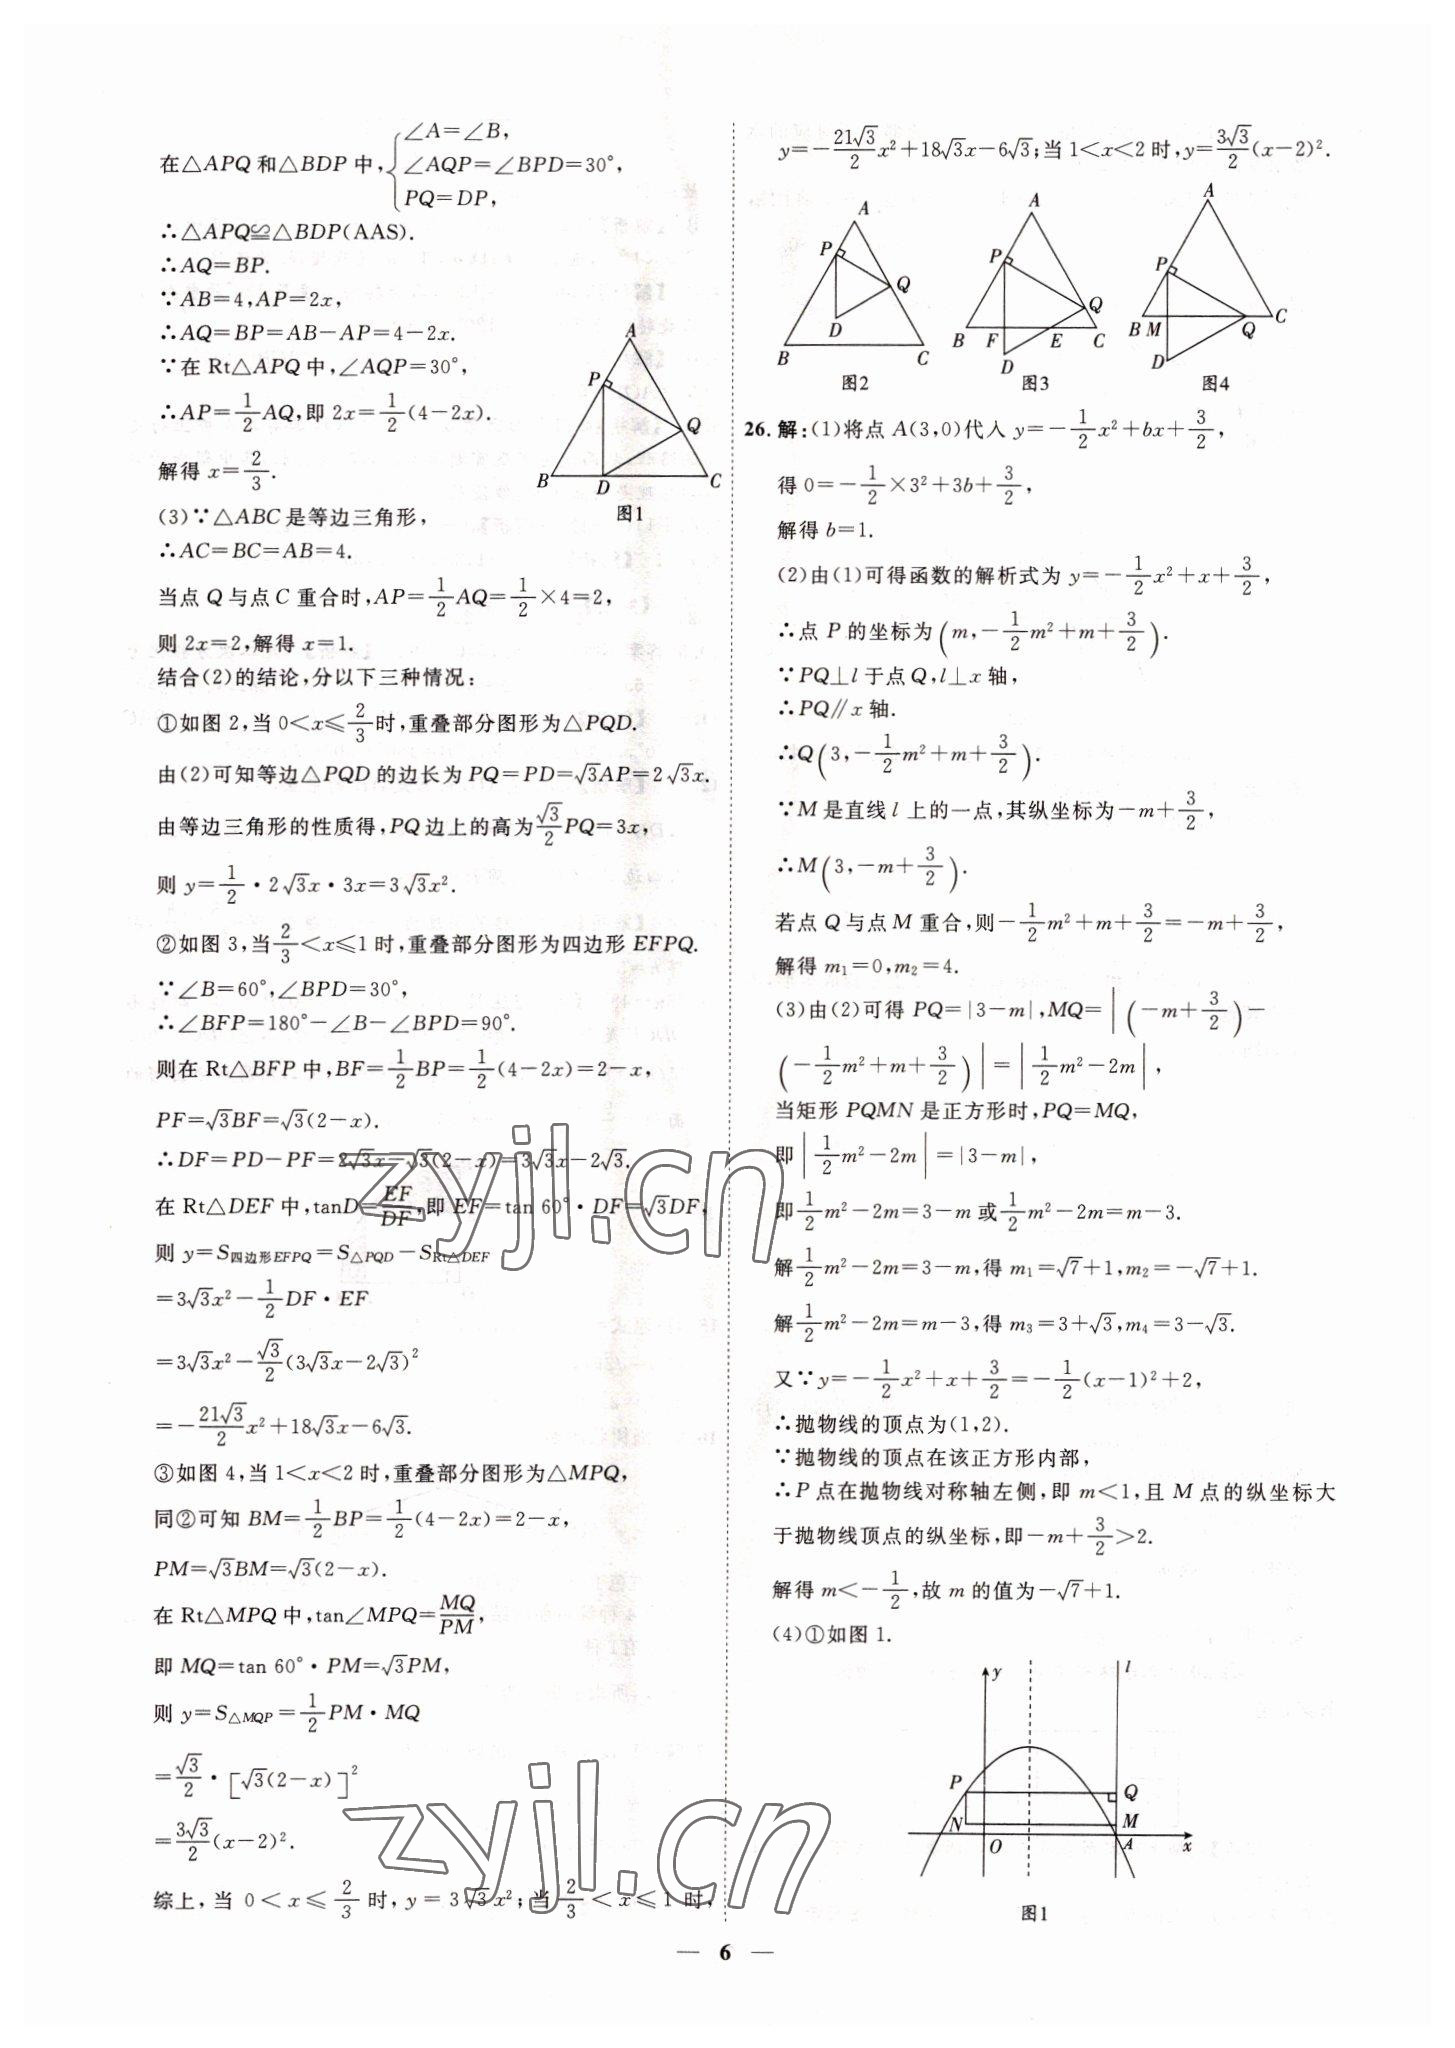 在△APQ 和△BDP 中,{∠A=∠B,
∠AQP=∠BPD=30°,
PQ=DP,
∴△APQ≌△BDP(AAS).
∴AQ=BP.
∵AB=4,AP=2x,
∴AQ=BP=AB-AP=4-2x.
∵在 Rt△APQ 中,∠AQP=30°,
∴AP=1/2AQ,即 2x=1/2(4-2x).
解得 x=2/3.
A
P
Q
B
D
C
图1
(3)∵△ABC 是等边三角形,
∴AC=BC=AB=4.
当点 Q 与点 C 重合时,AP=1/2AQ=1/2×4=2,
则 2x=2,解得 x=1.
结合(2)的结论,分以下三种情况:
①如图 2,当 0<x≤2/3时,重叠部分图形为△PQD.
由(2)可知等边△PQD 的边长为 PQ=PD=√3AP=2√3x.
由等边三角形的性质得,PQ边上的高为√3/2PQ=3x,
则 y=1/2·2√3x·3x=3√3x².
②如图 3,当2/3<x≤1 时,重叠部分图形为四边形 EFPQ.
∵∠B=60°,∠BPD=30°,
∴∠BFP=180°-∠B-∠BPD=90°.
则在 Rt△BFP 中,BF=1/2BP=1/2(4-2x)=2-x,
PF=√3BF=√3(2-x).
∴DF=PD-PF=2√3x-√3(2-x)=3√3x-2√3.
在 Rt△DEF 中,tanD=EF/DF,即 EF=tan 60°·DF=√3DF,
则 y=S四边形EFPQ=S△PQD-SRt△DEF
=3√3x²-1/2DF·EF
=3√3x²-√3/2(3√3x-2√3)²
=-21√3/2x²+18√3x-6√3.
③如图 4,当 1<x<2 时,重叠部分图形为△MPQ,
同②可知 BM=1/2BP=1/2(4-2x)=2-x,
PM=√3BM=√3(2-x).
在 Rt△MPQ 中,tan∠MPQ=MQ/PM,
即 MQ=tan 60°·PM=√3PM,
则 y=S△MQP=1/2PM·MQ
=√3/2·[√3(2-x)]²
=3√3/2(x-2)².
综上,当 0<x≤2/3时,y=3√3x²;当2/3<x≤1 时,
y=-21√3/2x²+18√3x-6√3;当 1<x<2 时,y=3√3/2(x-2)².
A
P
Q
D
B
C
图2
A
P
Q
B F E C
D
图3
A
P
B M Q C
D
图4
26.解:(1)将点 A(3,0)代入 y=-1/2x²+bx+3/2,
得 0=-1/2×3²+3b+3/2,
解得 b=1.
(2)由(1)可得函数的解析式为 y=-1/2x²+x+3/2,
∴点 P 的坐标为(m,-1/2m²+m+3/2).
∵PQ⊥l 于点 Q,l⊥x 轴,
∴PQ∥x 轴.
∴Q(3,-1/2m²+m+3/2).
∵M 是直线 l 上的一点,其纵坐标为-m+3/2,
∴M(3,-m+3/2).
若点 Q 与点 M 重合,则-1/2m²+m+3/2=-m+3/2,
解得 m₁=0,m₂=4.
(3)由(2)可得 PQ=|3-m|,MQ=|(-m+3/2)-
(-1/2m²+m+3/2)|=|1/2m²-2m|,
当矩形 PQMN 是正方形时,PQ=MQ,
即|1/2m²-2m|=|3-m|,
即1/2m²-2m=3-m 或1/2m²-2m=m-3.
解1/2m²-2m=3-m,得 m₁=√7+1,m₂=-√7+1.
解1/2m²-2m=m-3,得 m₃=3+√3,m₄=3-√3.
又∵y=-1/2x²+x+3/2=-1/2(x-1)²+2,
∴抛物线的顶点为(1,2).
∵抛物线的顶点在该正方形内部,
∴P 点在抛物线对称轴左侧,即 m<1,且 M 点的纵坐标大
于抛物线顶点的纵坐标,即-m+3/2>2.
解得 m<-1/2,故 m 的值为-√7+1.
(4)①如图 1.
y
l
P
Q
N
M
O
A
x
图1
— 6 —
zyjl.cn
zyjl.cn